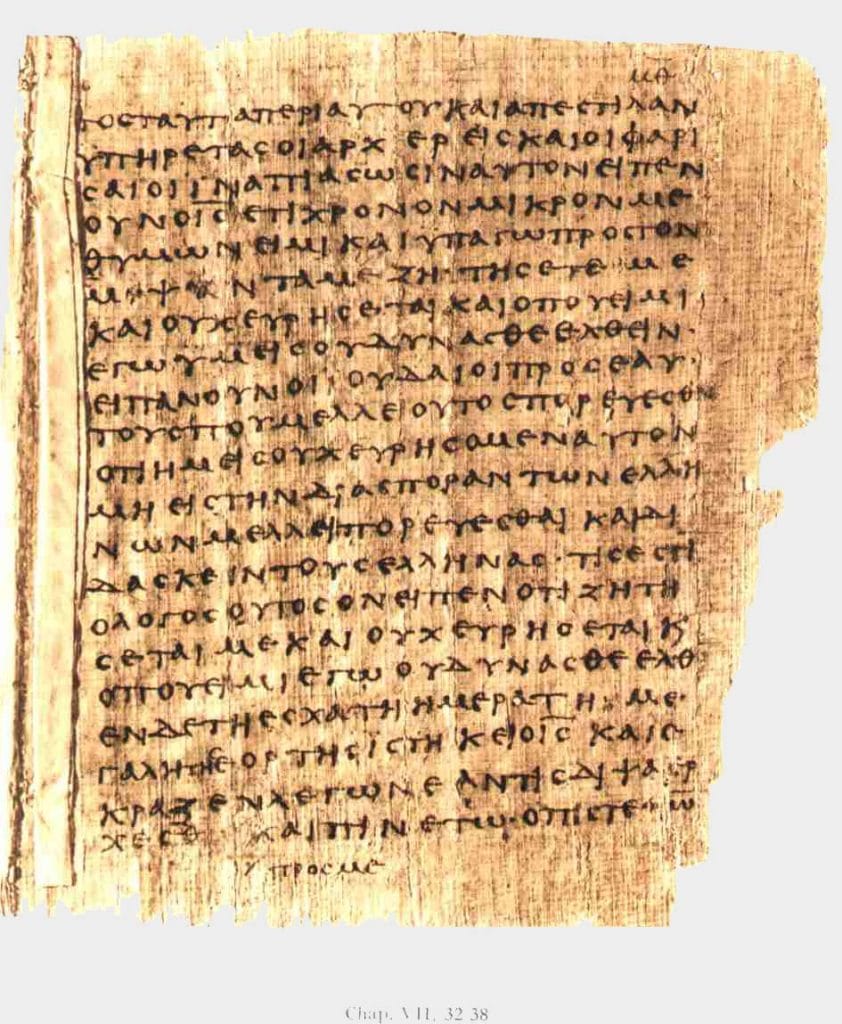 ΜΘ
ΤΟϹΤΑΥΤΑΠΕΡΙΑΥΤΟΥΚΑΙΑΠΕϹΤΙΛΑΝ
ΥΠΗΡΕΤΑϹΟΙΑΡΧΙΕΡΕΙϹΚΑΙΟΙΦΑΡΙ
ϹΑΙΟΙΙΝΑΠΙΑϹΩϹΙΝΑΥΤΟΝΕΙΠΕΝ
ΟΥΝΟΙ̅Ϲ̅ΕΤΙΧΡΟΝΟΝΜΙΚΡΟΝΜΕ
ΘΥΜΩΝΕΙΜΙΚΑΙΥΠΑΓΩΠΡΟϹΤΟΝ
ΠΕΜΨΑΝΤΑΜΕΖΗΤΗϹΕΤΕΜΕ
ΚΑΙΟΥΧΕΥΡΗϹΕΤΑΙΚΑΙΟΠΟΥΕΙΜΙ
ΕΓΩΥΜΕΙϹΟΥΔΥΝΑϹΘΕΕΛΘΕΙΝ·
ΕΙΠΑΝΟΥΝΟΙΙΟΥΔΑΙΟΙΠΡΟϹΕΑΥ·
ΤΟΥϹΠΟΥΜΕΛΛΕΙΟΥΤΟϹΠΟΡΕΥΕϹΘ
ΟΤΙΗΜΕΙϹΟΥΧΕΥΡΗϹΟΜΕΝΑΥΤΟΝ
ΜΗΕΙϹΤΗΝΔΙΑϹΠΟΡΑΝΤΩΝΕΛΛΗ
ΝΩΝΜΕΛΛΕΙΠΟΡΕΥΕϹΘΑΙΚΑΙΔΙ
ΔΑϹΚΕΙΝΤΟΥϹΕΛΛΗΝΑϹ·ΤΙϹΕϹΤΙ
ΟΛΟΓΟϹΟΥΤΟϹΟΝΕΙΠΕΝΟΤΙΖΗΤΗ
ϹΕΤΑΙΜΕΚΑΙΟΥΧΕΥΡΗϹΕΤΑΙΚ
ΟΠΟΥΕΙΜΙΕΓΩΟΥΔΥΝΑϹΘΕΕΛΘ
ΕΝΔΕΤΗΕϹΧΑΤΗΗΜΕΡΑΤΗΜΕ·
ΓΑΛΗΤΗϹΕΟΡΤΗϹΙϹΤΗΚΕΙΟΙ̅Ϲ̅ΚΑΙΕ
ΚΡΑΖΕΝΛΕΓΩΝΕΑΝΤΙϹΔΙΨΑΕΡ
ΧΕϹΘΩΚΑΙΠΙΝΕΤΩ·ΟΠΙϹΤΕΥΩ
ΠΡΟϹΜΕ
Chap. VII, 32-38